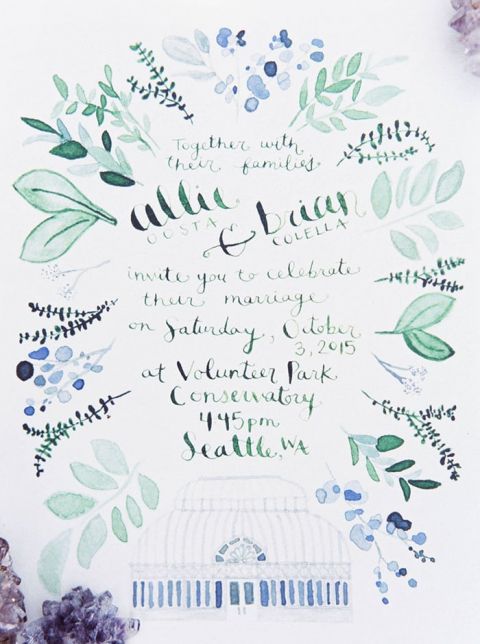 Together with
their families
allie
OOSTA
& brian
COLELLA
invite you to celebrate
their marriage
on Saturday, October
3, 2015
at Volunteer Park
Conservatory
445pm
Seattle, WA